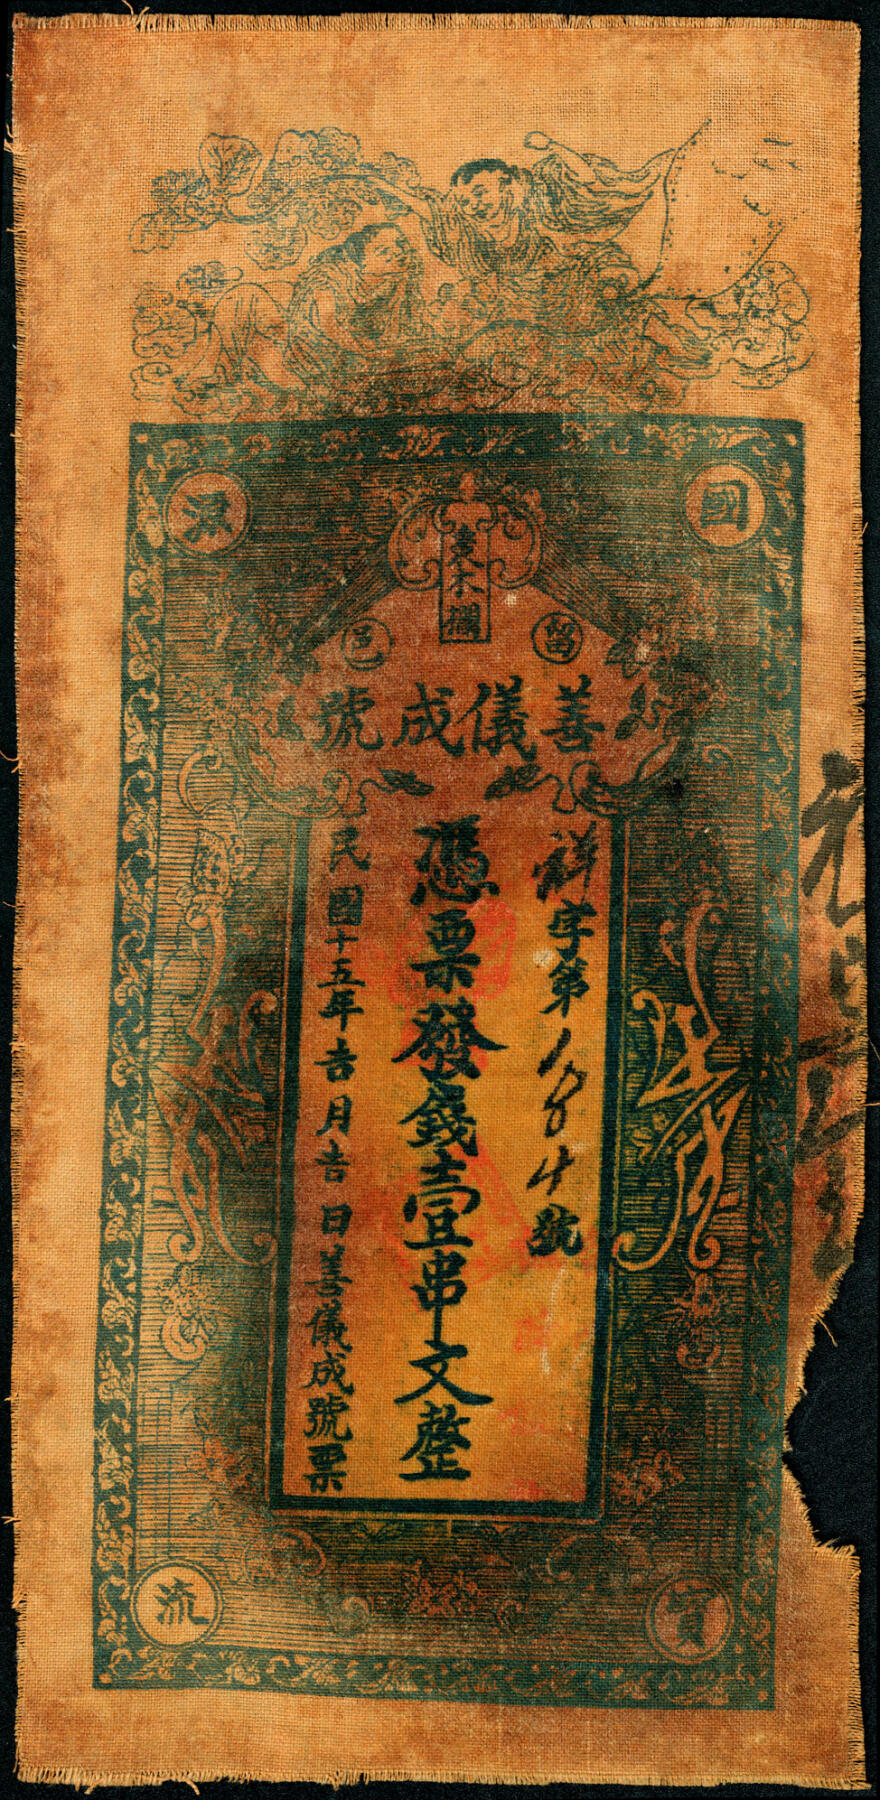 國寶源流
支不攔
留邑
善儀成號
祥字第1884號
憑票發錢壹串文整
民國十五年吉月吉日善儀成號票